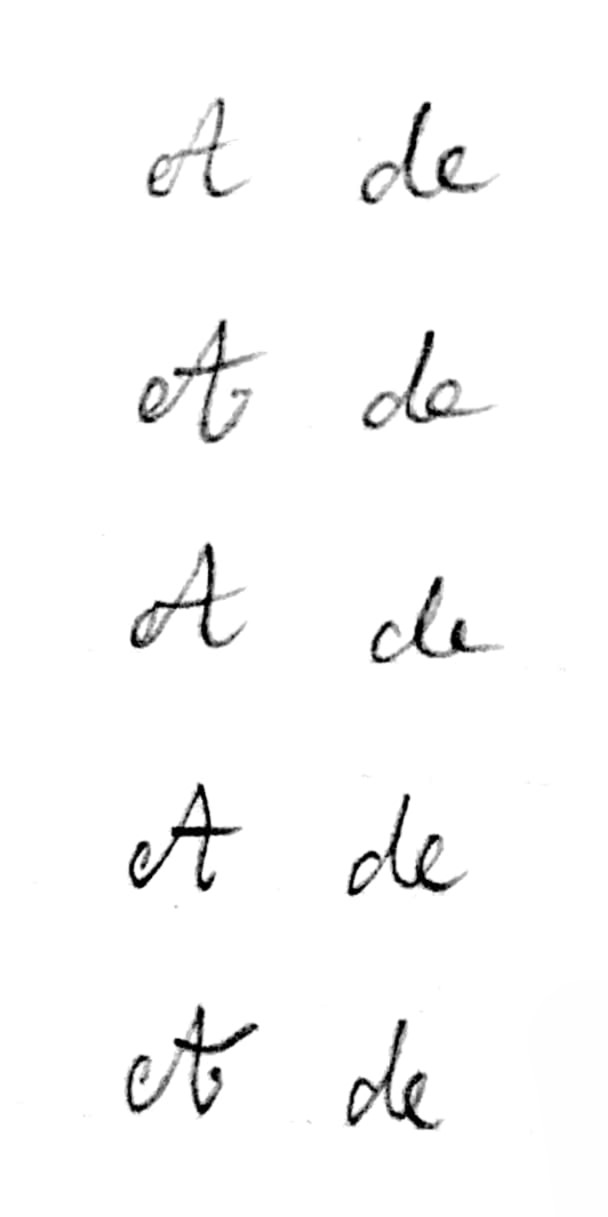 A de
A de
A de
A de
A de